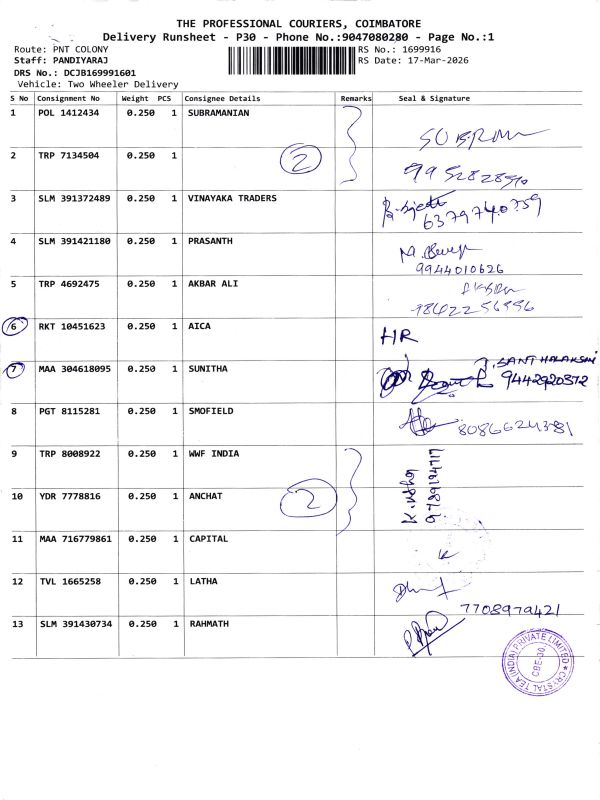 THE PROFESSIONAL COURIERS, COIMBATORE
Delivery Runsheet - P30 - Phone No.:9047080280 - Page No.:1
Route: PNT COLONY
RS No.: 1699916
Staff: PANDIYARAJ
RS Date: 17-Mar-2026
DRS No.: DCJB169991601
Vehicle: Two Wheeler Delivery
S No Consignment No Weight PCS Consignee Details Remarks Seal & Signature
1 POL 1412434 0.250 1 SUBRAMANIAN
2 TRP 7134504 0.250 1 2
3 SLM 391372489 0.250 1 VINAYAKA TRADERS
6379740759
4 SLM 391421180 0.250 1 PRASANTH
9944010626
5 TRP 4692475 0.250 1 AKBAR ALI
6 RKT 10451623 0.250 1 AICA HR
7 MAA 304618095 0.250 1 SUNITHA
9442920372
8 PGT 8115281 0.250 1 SMOFIELD
9 TRP 8008922 0.250 1 WWF INDIA
10 YDR 7778816 0.250 1 ANCHAT 2
11 MAA 716779861 0.250 1 CAPITAL
12 TVL 1665258 0.250 1 LATHA
7708979421
13 SLM 391430734 0.250 1 RAHMATH
CRYSTAL TEA (INDIA) PRIVATE LIMITED
CBE-30